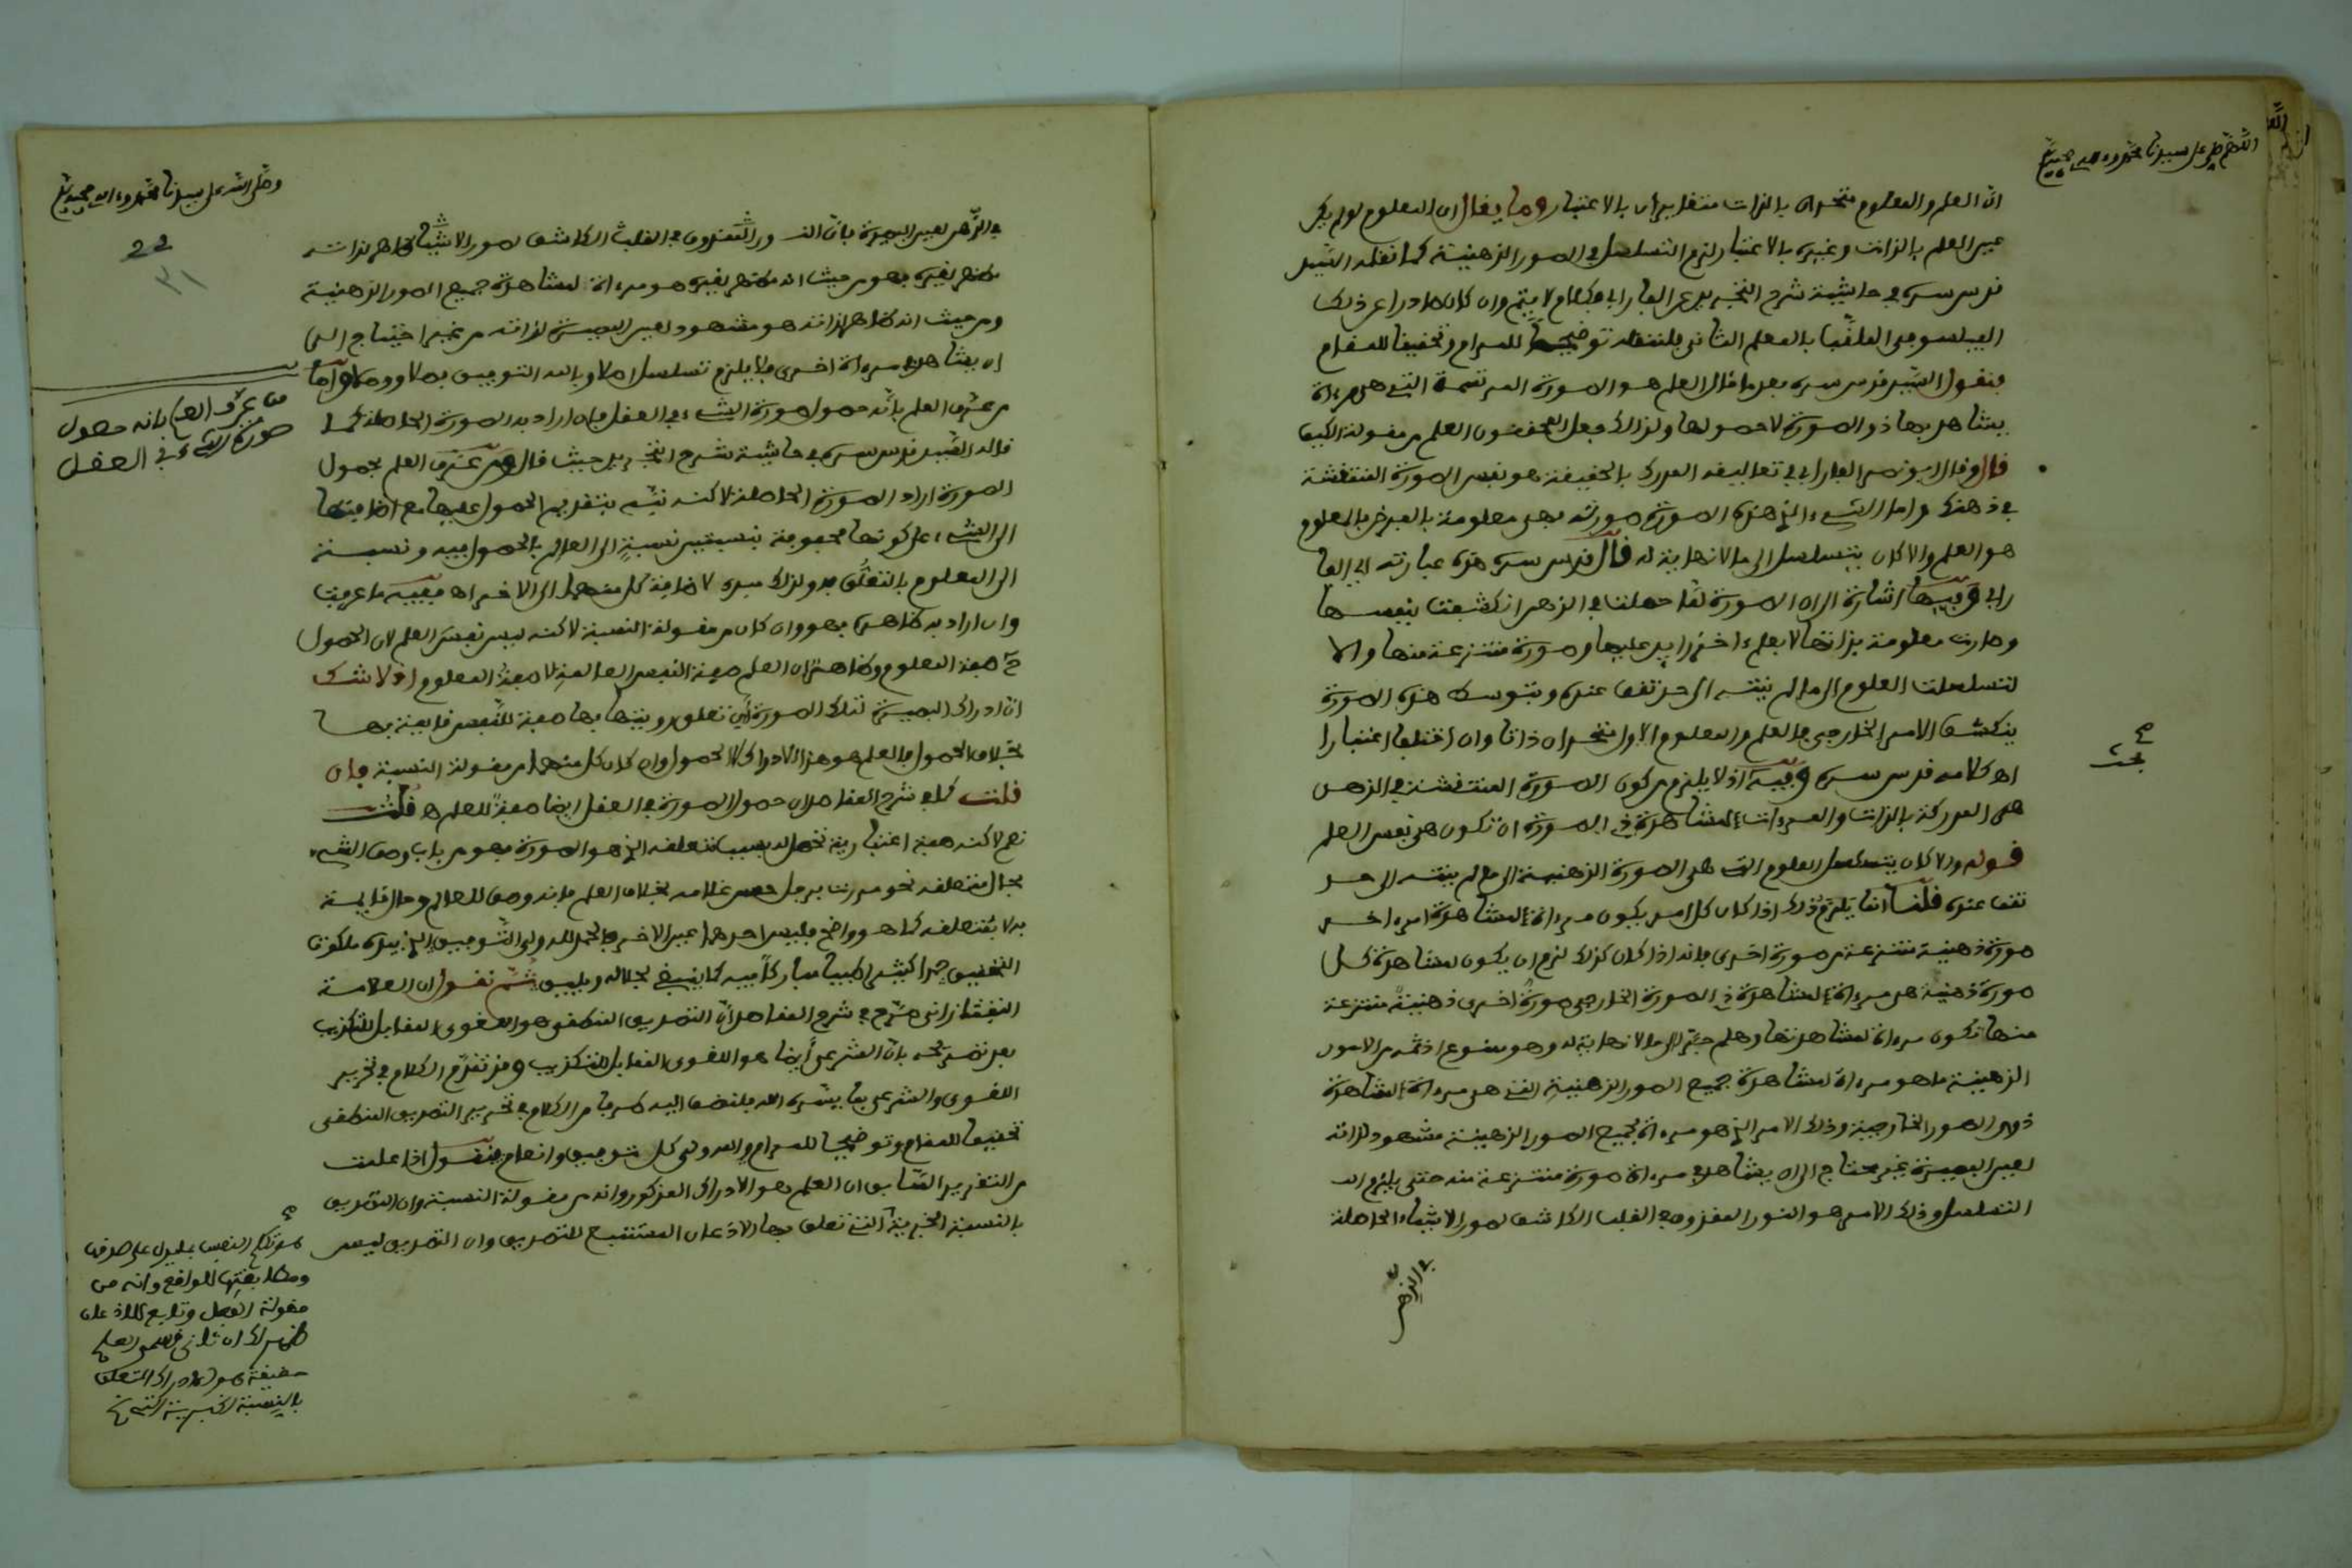 اللهم صل على سيدنا محمد وءاله وصحبه
ان العلم والمعلوم متحدان بالذات متغايران بالاعتبار وما يقال ان المعلوم لو لم يكن
عين العلم بالذات وغيره بالاعتبار لزم التسلسل في الصور الذهنية كما نقله السيد
قدس سره في حاشية شرح التجريد عن الفارابي فكلام لا يتم وان كان صادرا عن ذلك
الفيلسوف الملقب بالمعلم الثاني فلننقله توضيحا للمرام وتحقيقا للمقام
فنقول السيد قدس سره بعد ما قال العلم هو الصورة المرتسمة التي هي مرءاة
يشاهد بها ذو الصورة لا حصولها ولذلك جعل المحققون العلم من مقولة الكيف
قال وقال ابو نصر الفارابي في تعاليقه المدرك بالحقيقة هو نفس الصورة المنتقشة
في ذهنك واما الشيء الذي هذه الصورة صورته فهي معلومة بالعرض فالمعلوم
هو العلم والا كان يتسلسل الى ما لا نهاية له قال قدس سره هذه عبارته اي الفا
رابي وفيها اشارة الى ان الصورة لما حصلت في الذهن انكشفت بنفسها
وصارت معلومة بذاتها لا بعلم ءاخر زايد عليها وصورة منتزعة منها والا
لتسلسلت العلوم الى ما لم ينته الى حد تقف عنده وبتوسط هذه الصورة
ينكشف الامر الخارجي فالعلم والمعلوم الاول متحدان ذاتا وان اختلفا اعتبارا
بحث
اه كلامه قدس سره وفيه اذ لا يلزم من كون الصورة المنتقشة في الذهن
هي المدركة بالذات والمرءات لمشاهدة ذي الصورة ان تكون هي نفس العلم
قوله والا كان يتسلسل العلوم التي هي الصورة الذهنية الى ما لم ينته الى حد
تقف عنده قلنا انما يلزم ذلك اذا كان كل امر يكون مرءاة لمشاهدة امر ءاخر
صورة ذهنية منتزعة من صورة اخرى فانه اذا كان كذلك لزم ان يكون لمشاهدة كل
صورة ذهنية هي مرءاة لمشاهدة ذي الصورة الخارجي صورة اخرى ذهنية منتزعة
منها تكون مرءاة لمشاهدتها وهلم جرا الى ما لا نهاية له وهو ممنوع اذ ثمه من الامور
الذهنية ما هو مرءاة لمشاهدة جميع الصور الذهنية التي هي مرءاة لمشاهدة
ذوي الصور الخارجية وذلك الامر الذي هو مرءاة لجميع الصور الذهنية مشهود لذاته
لعين البصيرة غير محتاج الى ان يشاهد في مرءاة صورة منتزعة منه حتى يلزم الـ
التسلسل وذلك الامر هو النور المقذوف في القلب الكاشف لصور الاشياء الحاصلة
في الذهن
وصلى الله على سيدنا محمد وءاله وصحبه
22
٣١
في الذهن لعين البصيرة فان النور المقذوف في القلب الكاشف لصور الاشياء ظاهر لذاته
مظهر لغيره فهو من حيث انه مظهر لغيره هو مرءاة لمشاهدة جميع الصور الذهنية
ومن حيث انه ظاهر لذاته هو مشهود لعين البصيرة لذاته من غير احتياج الى
ان يشاهد في مرءاة اخرى فلا يلزم تسلسل اصلا وبالله التوفيق فصلا ووصلا واما
من عرف العلم بانه حصول
صورة الشيء في العقل
من عرف العلم بانه حصول صورة الشيء في العقل فان اراد به الصورة الحاصلة كما
قاله السيد قدس سره في حاشية شرح التجريد حيث قال ومن عرف العلم بحصول
الصورة اراد الصورة الحاصلة لاكنه نبه بتقديم الحصول عليها مع اضافتها
الى الشيء على كونها محفوفة بنسبتين نسبة الى العالم بالحصول فيه ونسبة
الى المعلوم بالتعلق به ولذلك اضافة كل منهما الى الاخر اه ففيه ما عرفت
وان اراد به ظاهره فهو وان كان من مقولة النسبة لاكنه ليس نفس العلم لان الحصول
صفة المعلوم وظاهر ان العلم صفة النفس العالمة لا صفة المعلوم اذ لا شك
ان ادراك البصيرة لتلك الصورة اي تعلق رويتها بها صفة للنفس قايمة بها
بخلاف الحصول فالعلم هو هذا الادراك لا الحصول وان كان كل منهما من مقولة النسبة فان
قلت كما في شرح المقاصد ان حصول الصورة في العقل ايضا صفة للعلم ه قلت
نعم لاكنه صفة اعتبارية تحصل له بسبب متعلقه الذي هو الصورة فهو من باب وصف الشيء
بحال متعلقه نحو مررت برجل حسن غلامه بخلاف العلم فانه وصف للعالم وحال قايمة
به لا بمتعلقه كما هو واضح فليس احدهما عين الاخر فالحمد لله ولي التوفيق الذي بيده ملكوت
التحقيق حمدا كثيرا طيبا مباركا فيه كما ينبغي لجلاله ويليق ثم نقول ان العلامة
التفتازاني صرح في شرح المقاصد ان التصديق المنطقي هو اللغوي المقابل للتكذيب
بعد تصريحه بان الشرعي ايضا هو اللغوي المقابل للتكذيب وقد تقدم الكلام في تحرير
اللغوي والشرعي بما يسره الله فلنضف اليه طرفا من الكلام في تحرير التصديق المنطقي
تحقيقا للمقام وتوضيحا للمرام والله ولي كل توفيق وانعام فنقول اذا علمت
من التقرير السابق ان العلم هو الادراك المذكور وانه من مقولة النسبة وان التصديق
بالنسبة الخبرية التي تعلق بها الاذعان المستتبع للتصديق وان التصديق ليس
هو تكلم النفس بما يدل على صدقها
ومطابقتها للواقع وانه من
مقولة الفعل وتابع للاذعان
ظهر لك ان ثاني قسمي العلم
حقيقة هو الادراك المتعلق
بالنسبة الخبرية التي